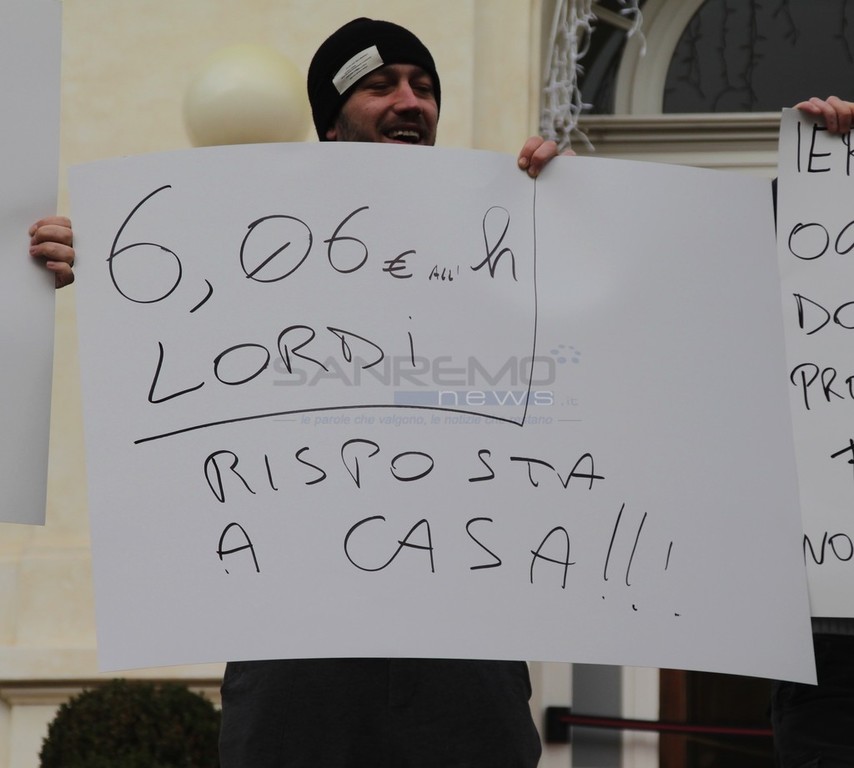 6,06 € ALL' h
LORDI
RISPOSTA
A CASA!!!
SANREMO
news.it
le parole che valgono, le notizie che restano
IE
OG
DO
PRE
NO